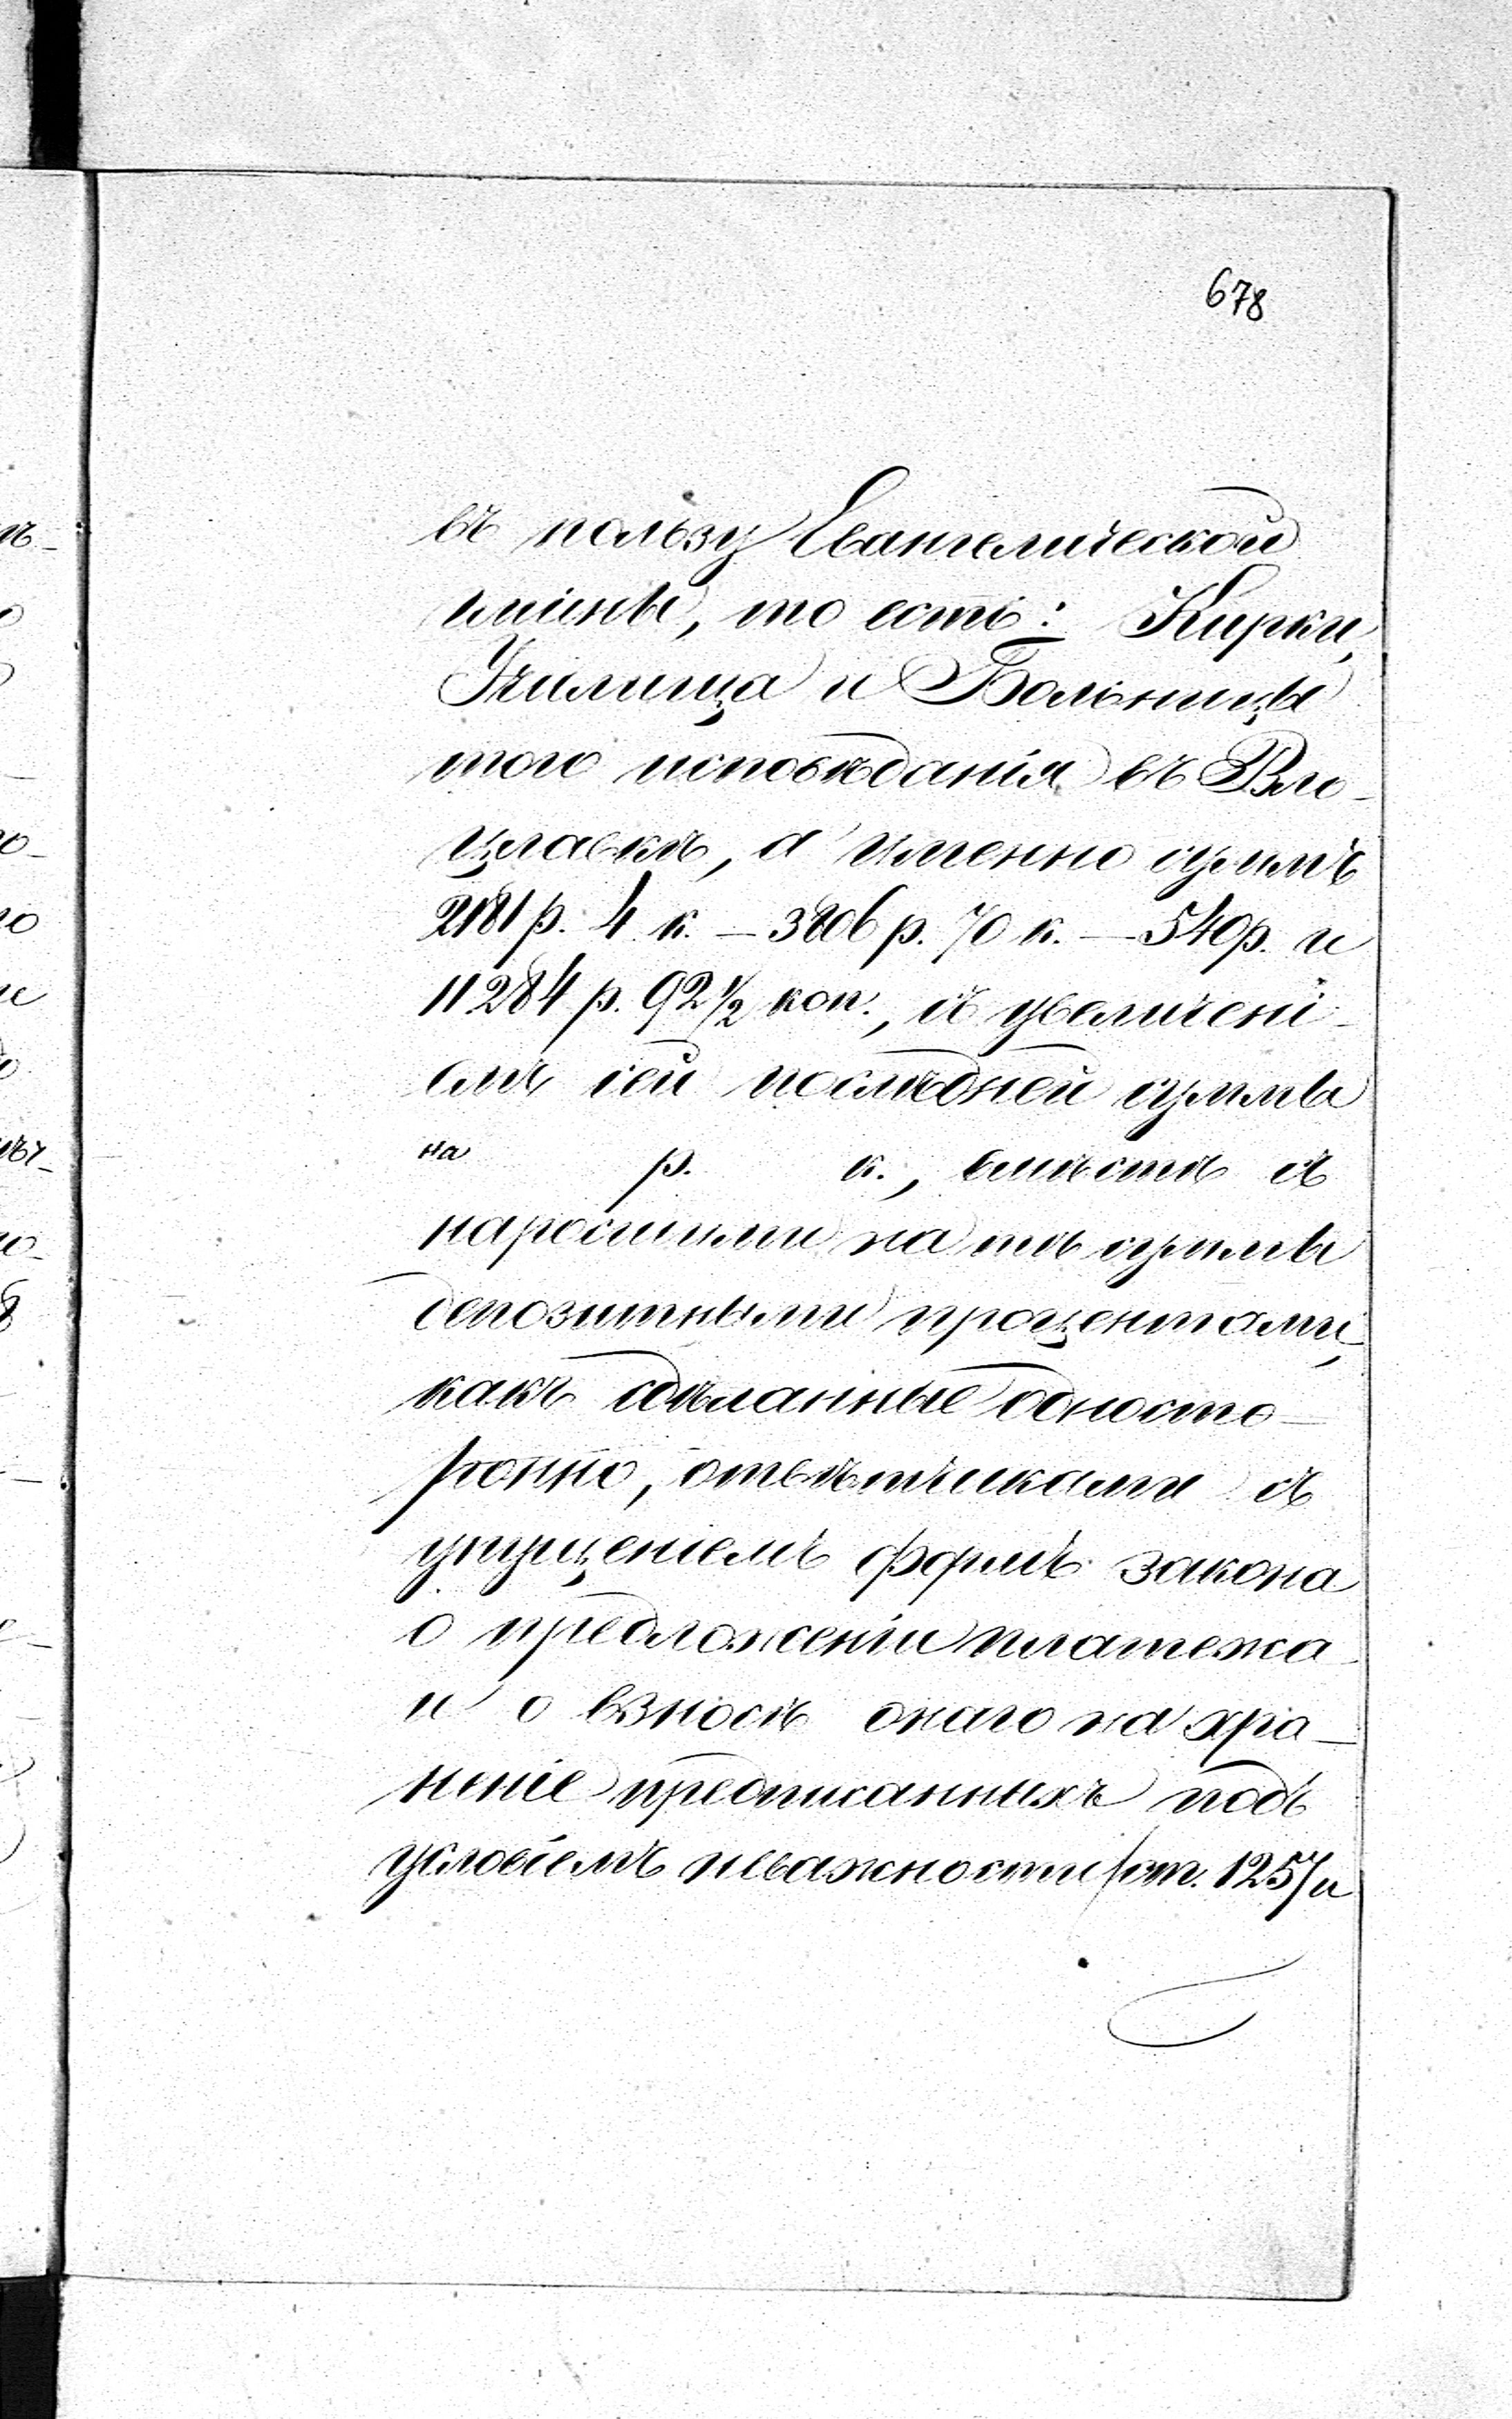 678
въ пользу Евангелической
гмины, то есть: Кирки,
Училища и Больницы
того исповѣданія въ Вло-
цлавкѣ, а именно суммъ
2181 р. 4 к. — 3806 р. 70 к. — 540 р. и
11284 р. 92 1/2 коп., съ увеличені-
емъ сей послѣдней суммы
на р. к., вмѣстѣ съ
наросшими на тѣ суммы
депозитными процентами,
какъ сдѣланные односто-
ронно, отвѣтчиками съ
упущеніемъ формъ закона
о предложеніи платежа
и о взносѣ онаго на хра-
неніе предписанныхъ подъ
условіемъ неважности /ст. 1257 и